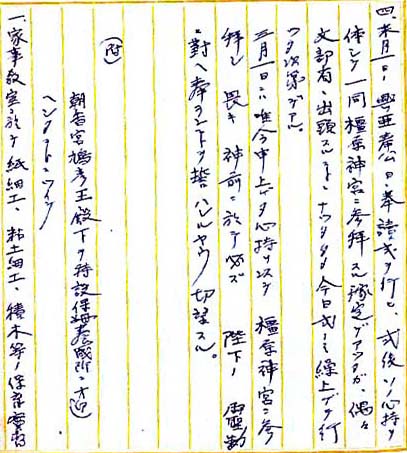 四、来月一日ハ興亜奉公日、奉読式ヲ行ヒ、式後ソノ心持ヲ
体シテ一同橿原神宮ニ参拝スル予定デアツタガ、偶々
文部省ヘ出頭スルコトニナツタタメ今日式ヲ繰上ゲテ行
フタ次第デアル。
三月一日ニハ唯今申上ゲタ心持ヲ以テ橿原神宮ニ参
拝シ 畏キ 神前ニ於テ必ズ 陛下ノ 御
ニ対ヘ奉ラントヲ誓ハレルヤウ切望スル。
(附)
朝香宮鳩彦王殿下ヲ特設保姆養成所ニオ迎
ヘシタコトニツイテ
一、家事教室ニ於テ紙細工、粘土細工、積木等ノ保育実習